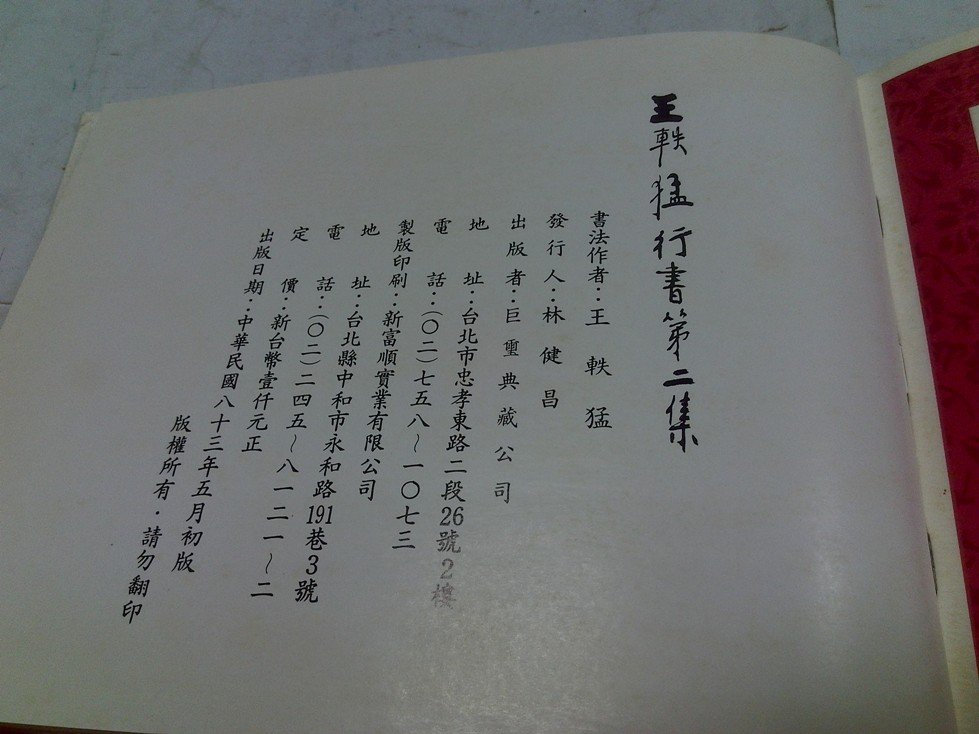 王軼猛行書第二集
書法作者：王軼猛
發行人：林健昌
出版者：巨璽典藏公司
地址：台北市忠孝東路二段26號2樓
電話：(〇二)七五八～一〇七三
製版印刷：新富順實業有限公司
地址：台北縣中和市永和路191巷3號
電話：(〇二)二四五～八一二一～二
定價：新台幣壹仟元正
出版日期：中華民國八十三年五月初版
版權所有．請勿翻印